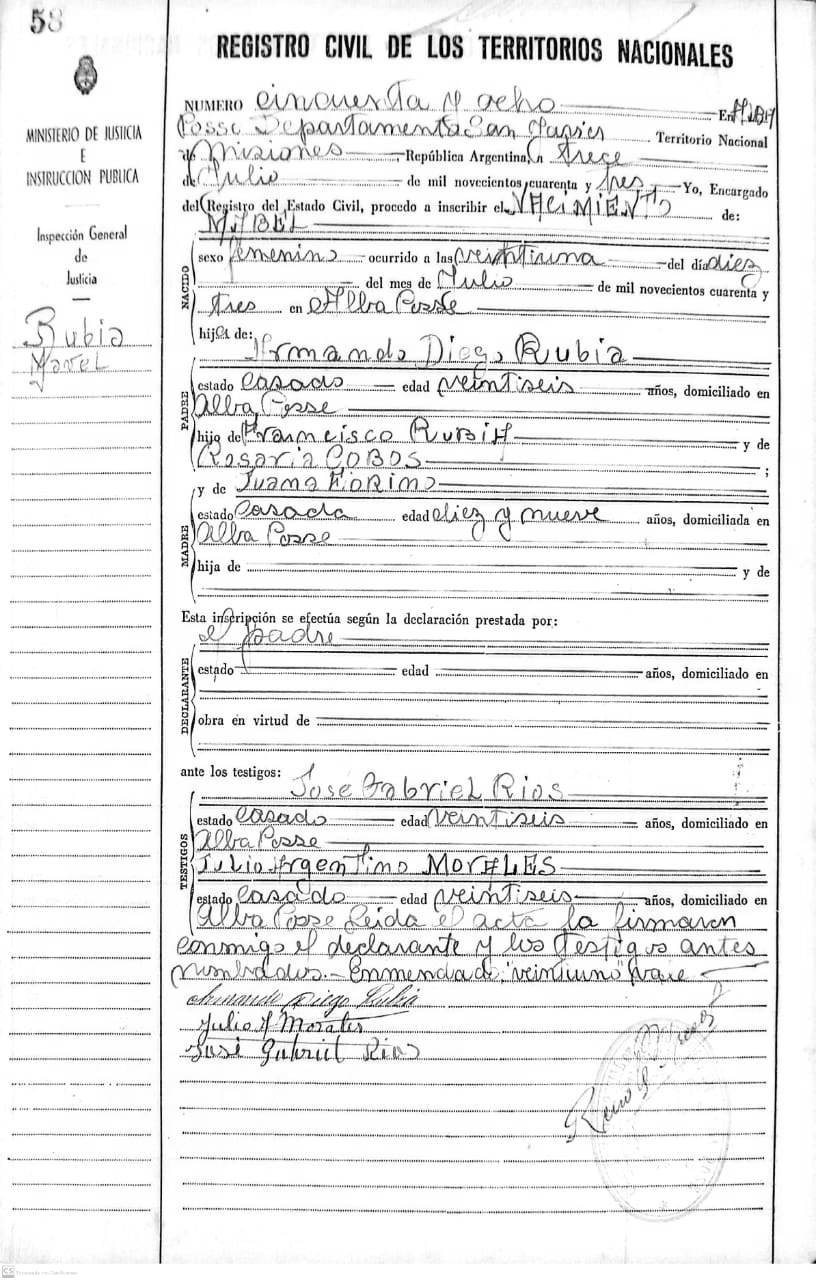 58
REGISTRO CIVIL DE LOS TERRITORIOS NACIONALES
MINISTERIO DE JUSTICIA
E
INSTRUCCION PUBLICA
Inspección General
de
Justicia
Rubia
NUMERO cincuenta y ocho En Alba
Posse Departamento San Javier Territorio Nacional
de Misiones, República Argentina, a trece
de Julio de mil novecientos cuarenta y tres, Yo, Encargado
del Registro del Estado Civil, procedo a inscribir el NACIMIENTO de:
MABEL
NACIDO
sexo femenino ocurrido a las veintiuna del día diez
del mes de Julio de mil novecientos cuarenta y
tres en Alba Posse
hija de:
Armando Diego Rubia
PADRE
estado casado edad veintiseis años, domiciliado en
Alba Posse
hijo de Francisco RUBIA y de
Rosaria COBOS ;
y de Juana FIORINO
MADRE
estado casada edad diez y nueve años, domiciliada en
Alba Posse
hija de y de
Esta inscripción se efectúa según la declaración prestada por:
el padre
DECLARANTE
estado edad años, domiciliado en
obra en virtud de
ante los testigos:
José Gabriel Rios
TESTIGOS
estado casado edad veintiseis años, domiciliado en
Alba Posse
Julio Argentino MORALES
estado casado edad veintiseis años, domiciliado en
Alba Posse Leida el acta la firmaron
conmigo el declarante y los testigos antes
nombrados.- Enmendado: "veintiuno" vale
Armando Diego Rubia
Julio A Morales
José Gabriel Rios
CS